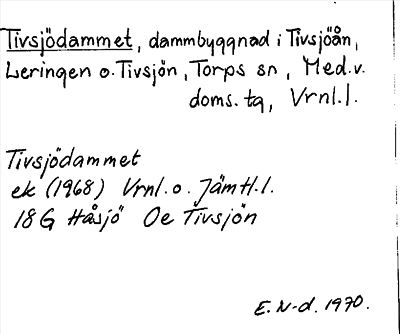 Tivsjödammet, dammbyggnad i Tivsjöån,
Leringen o. Tivsjön, Torps sn, Med.v.
doms. tg, Vrnl.l.
Tivsjödammet
ek (1968) Vrnl. o. Jämtl.l.
18 G Håsjö Oe Tivsjön
E. N-d. 1970.